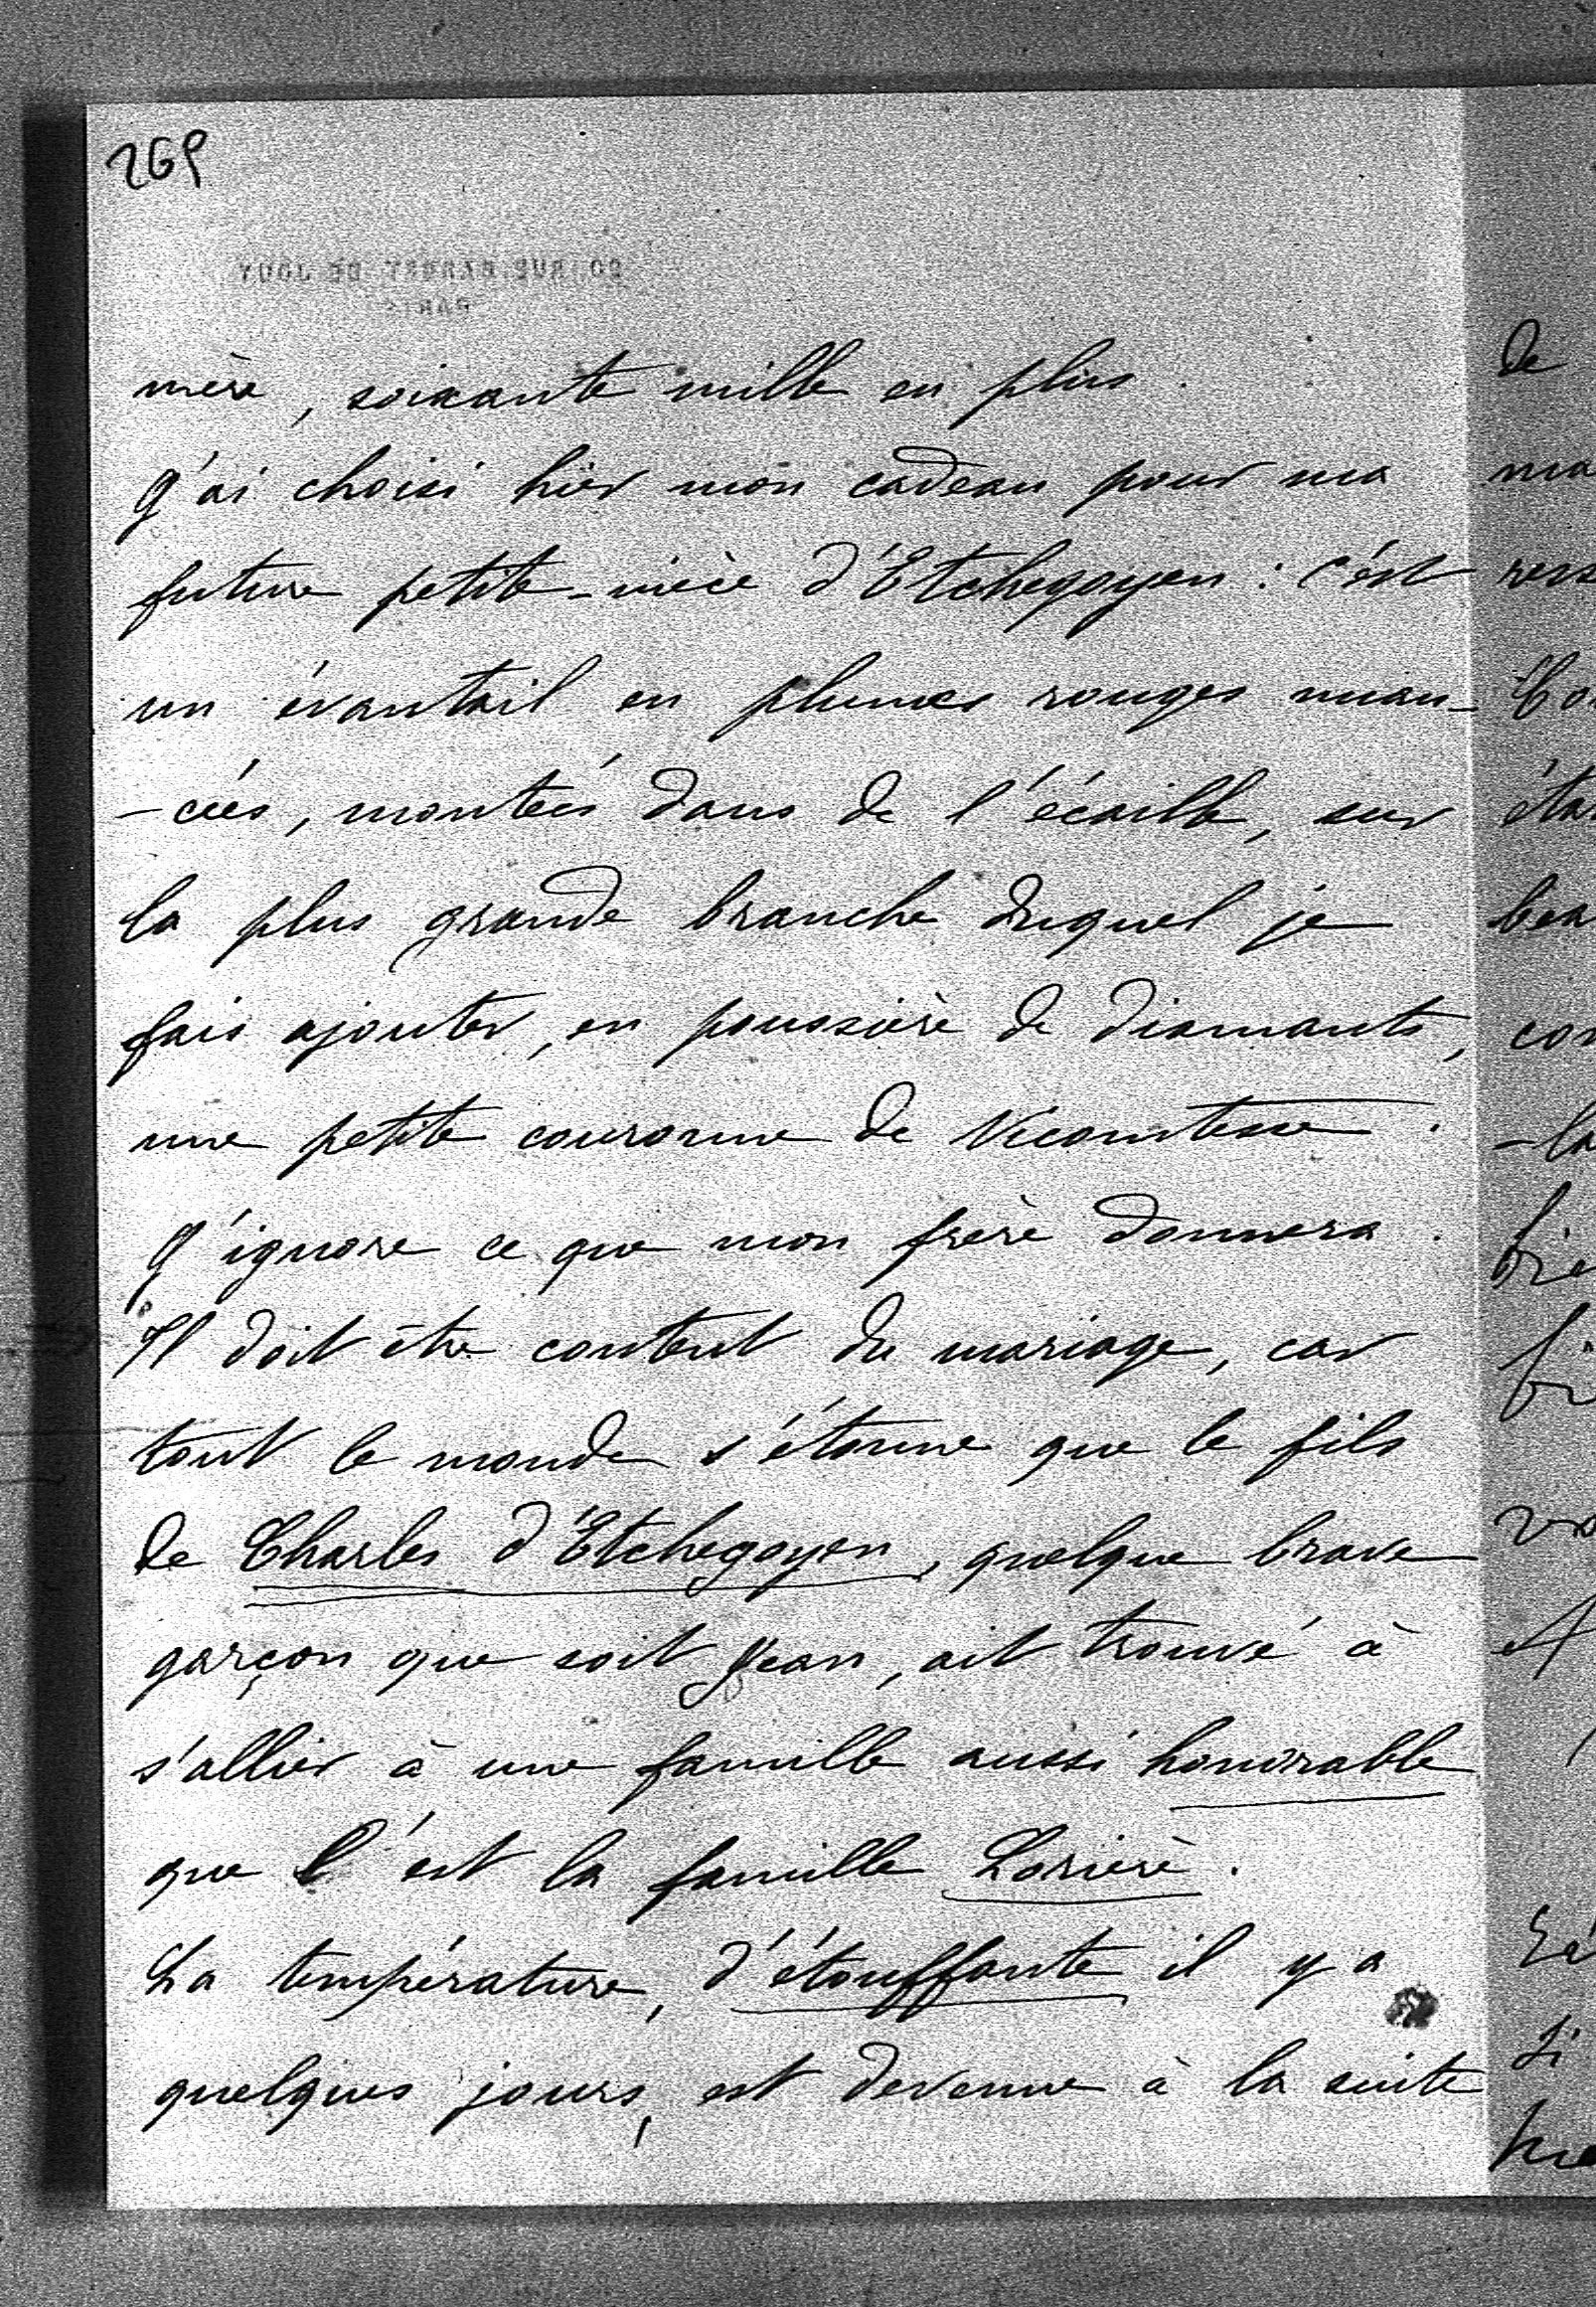 269
20 RUE BARBET DE JOUY
PARIS
mère, soixante mille en plus.
J'ai choisi hier mon cadeau pour ma
future petite-nièce d'Etchegoyen : c'est
un éventail en plumes rouges nuan-
-cées, montées dans de l'écaille, sur
la plus grande branche duquel je
fais ajouter, en poussière de diamants,
une petite couronne de Vicomtesse.
J'ignore ce que mon frère donnera.
Il doit être content du mariage, car
tout le monde s'étonne que le fils
de Charles d'Etchegoyen, quelque brave
garçon que soit Jean, ait trouvé à
s'allier à une famille aussi honorable
que l'est la famille Lorière.
La température, d'étouffante il y a
quelques jours, est devenue à la suite